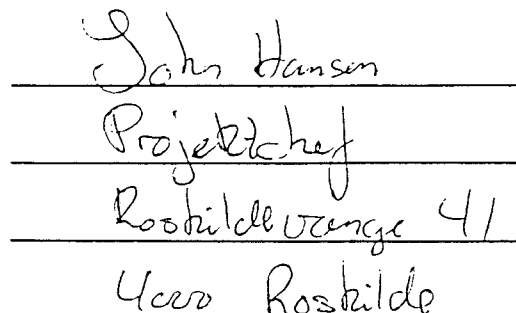 John Hansen
Projektchef
Roskildevænge 41
4000 Roskilde